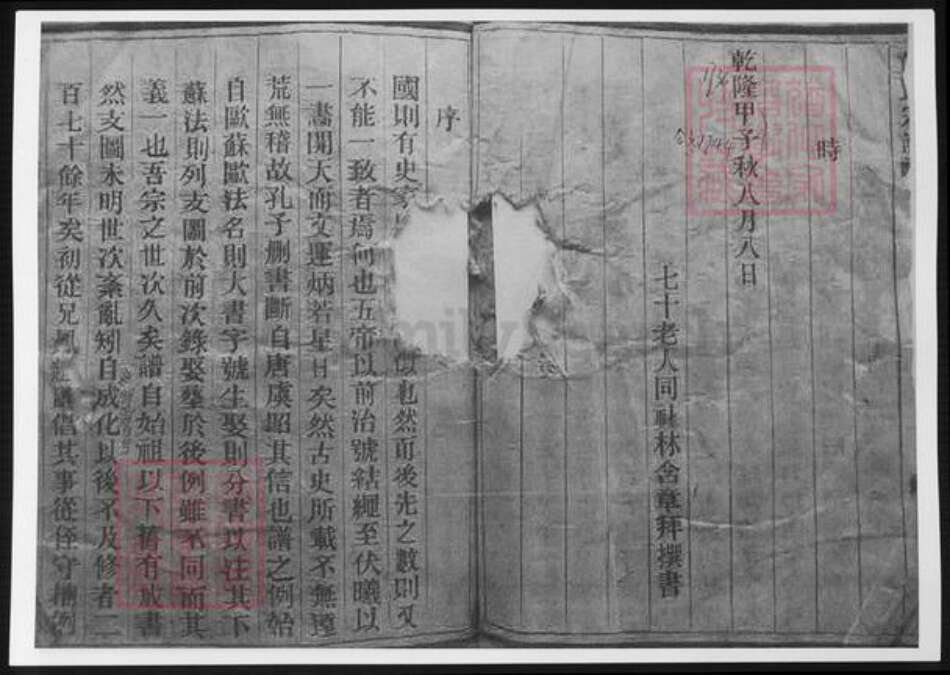 時
乾隆甲子秋八月八日
七十老人同社林含章拜撰書
序
國則有史家
也然而後先之數則又
不能一致者焉何也五帝以前治號結繩至伏曦以
一畵開天而文運炳若星日矣然古史所載不無
荒無稽故孔子刪書斷自唐虞昭其信也譜之例始
自歐蘇歐法名則大書字號生娶則分書以註其下
蘇法則列支圖於前次錄娶塟於後例雖不同而其
義一也吾宗之世次久矣譜自始祖以下舊有成書
然支圖未明世次紊亂矧自成化以後不及修者二
百七十餘年矣初從兄鳳 倡其事從侄守